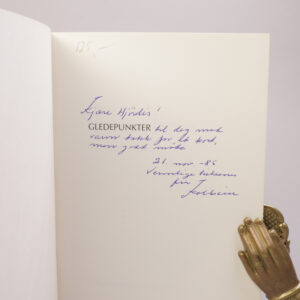 125,-
Kjære Hjördis!
GLEDEPUNKTER til deg med
varm takk for et kort,
men godt møte
21. nov. -85
Vennlige tanker
fra
Kolbein